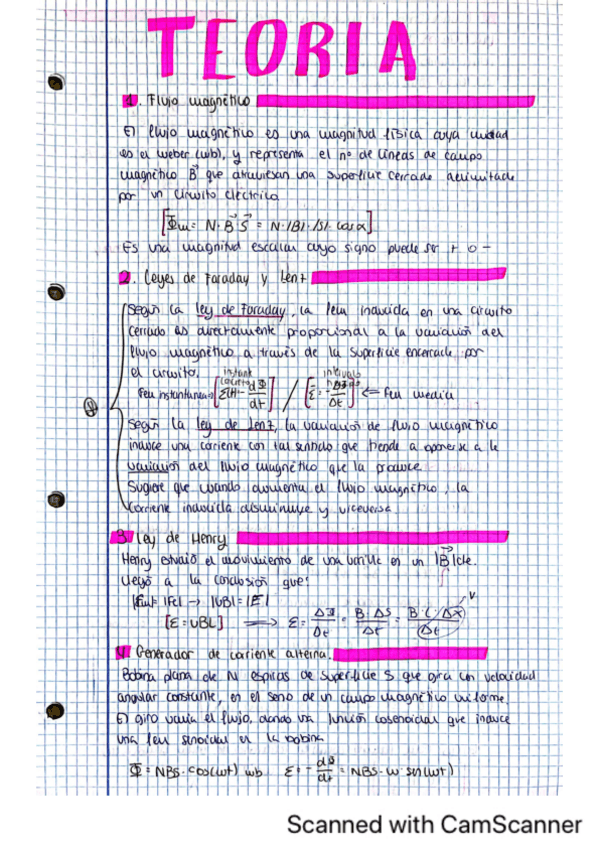 TEORIA
1. Flujo magnético
El flujo magnético es una magnitud física cuya unidad
es el weber (wb), y representa el nº de líneas de campo
magnético B⃗ que atraviesan una superficie cerrada delimitada
por un circuito eléctrico
[Φm = N·B⃗·S⃗ = N·|B|·|S|·cosα]
Es una magnitud escalar cuyo signo puede ser + o -
2. Leyes de Faraday y Lenz
Según la ley de Faraday, la fem inducida en una circuito
cerrado es directamente proporcional a la variación del
flujo magnético a través de la superficie encerrada por
el circuito.
instante concreto
intervalo
Fem instantanea → [ε(t)=-dΦ/dt] / [ε̄=-ΔΦ/Δt] ← fem media
Según la ley de Lenz, la variación de flujo magnético
induce una corriente con tal sentido que tiende a oponerse a la
variación del flujo magnético que la produce.
Sugiere que cuando aumenta el flujo magnético, la
corriente inducida disminuye y viceversa
3. Ley de Henry
Henry estudió el movimiento de una varilla en un |B⃗| cte.
Llegó a la conclusión que:
|Fm|=|Fe| → |UB|=|E|
v
[ε=UBL] ⟹ ε = ΔΦ/Δt = B·ΔS/Δt = B·L·Δx/Δt
4. Generador de corriente alterna.
Bobina plana de N espiras de superficie S que gira con velocidad
angular constante, en el seno de un campo magnético uniforme.
El giro varía el flujo, dando una función cosenoidal que induce
una fem sinoidal en la bobina
Φ = NBS·cos(ωt) wb ε = -dΦ/dt = NBS·ω·sen(ωt)
Scanned with CamScanner